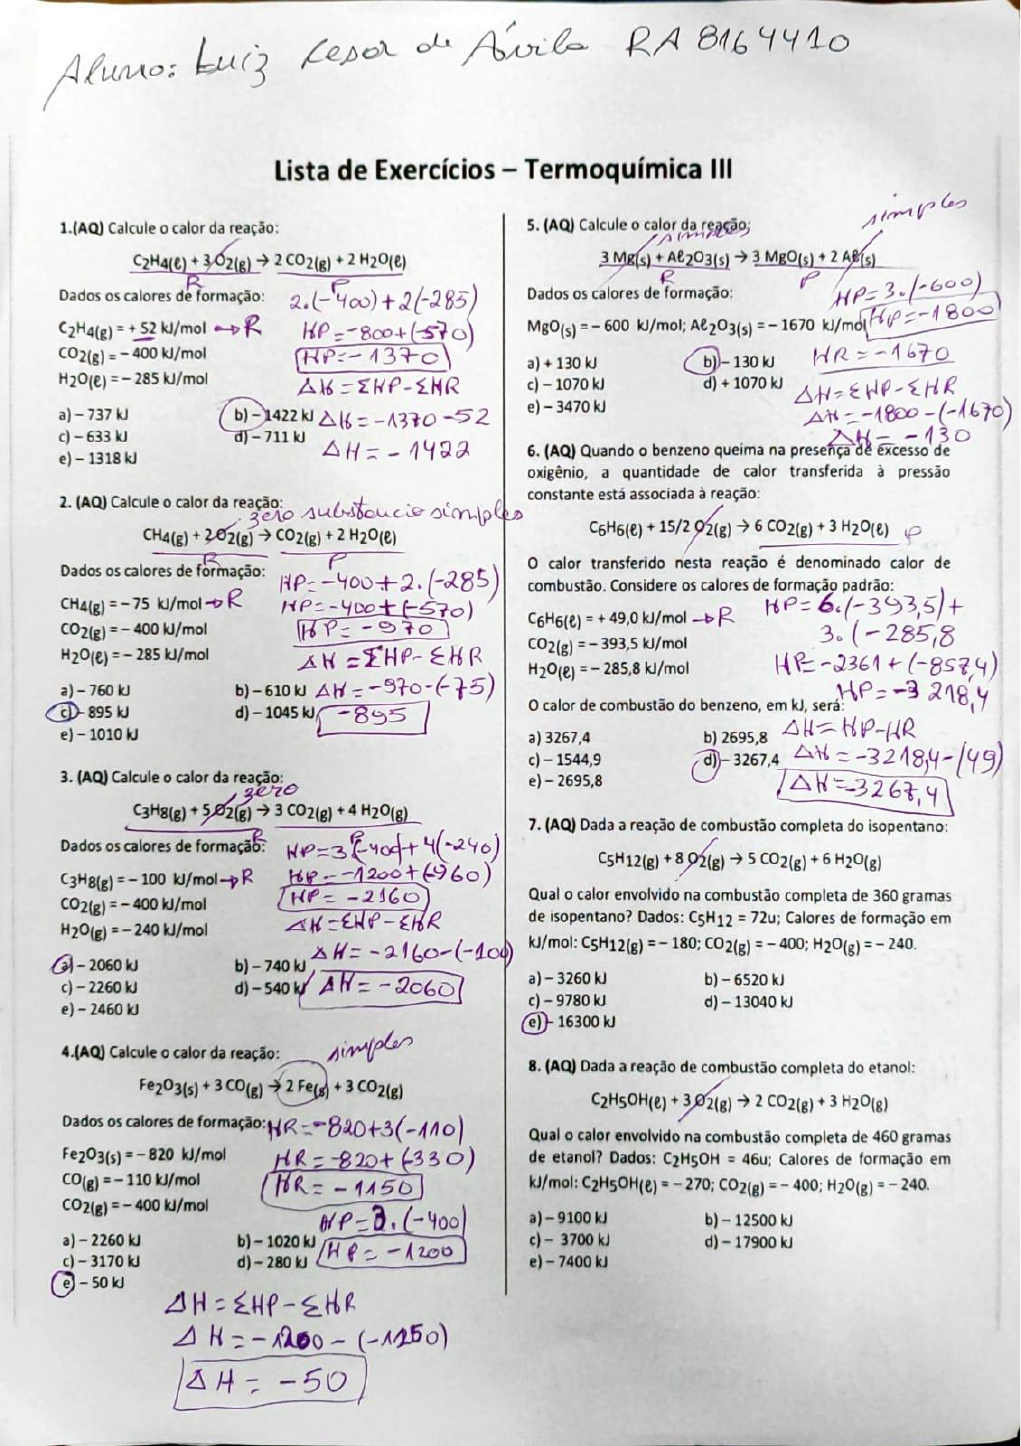 Aluno: Luiz Cesar de Ávila RA 8164410
Lista de Exercícios – Termoquímica III
1.(AQ) Calcule o calor da reação:
C2H4(ℓ) + 3 O2(g) → 2 CO2(g) + 2 H2O(ℓ)
R P
Dados os calores de formação: 2.(-400)+2(-285)
C2H4(g) = + 52 kJ/mol → R HP=-800+(-570)
CO2(g) = – 400 kJ/mol HP=-1370
H2O(ℓ) = – 285 kJ/mol ΔH=ΣHP-ΣHR
a) – 737 kJ b) – 1422 kJ ΔH=-1370-52
c) – 633 kJ d) – 711 kJ ΔH=-1422
e) – 1318 kJ
2. (AQ) Calcule o calor da reação:
zero substancia simples
CH4(g) + 2 O2(g) → CO2(g) + 2 H2O(ℓ)
R P
Dados os calores de formação: HP=-400+2.(-285)
CH4(g) = – 75 kJ/mol → R HP=-400+(-570)
CO2(g) = – 400 kJ/mol HP=-970
H2O(ℓ) = – 285 kJ/mol ΔH=ΣHP-ΣHR
a) – 760 kJ b) – 610 kJ ΔH=-970-(-75)
c) – 895 kJ d) – 1045 kJ -895
e) – 1010 kJ
3. (AQ) Calcule o calor da reação:
zero
C3H8(g) + 5 O2(g) → 3 CO2(g) + 4 H2O(g)
R P
Dados os calores de formação: HP=3(-400)+4(-240)
C3H8(g) = – 100 kJ/mol → R HP=-1200+(-960)
CO2(g) = – 400 kJ/mol HP=-2160
H2O(g) = – 240 kJ/mol ΔH=ΣHP-ΣHR
ΔH=-2160-(-100)
a) – 2060 kJ b) – 740 kJ
c) – 2260 kJ d) – 540 kJ ΔH=-2060
e) – 2460 kJ
4.(AQ) Calcule o calor da reação: simples
Fe2O3(s) + 3 CO(g) → 2 Fe(s) + 3 CO2(g)
Dados os calores de formação: HR=-820+3(-110)
Fe2O3(s) = – 820 kJ/mol HR=-820+(-330)
CO(g) = – 110 kJ/mol HR=-1150
CO2(g) = – 400 kJ/mol
HP=3.(-400)
a) – 2260 kJ b) – 1020 kJ HP=-1200
c) – 3170 kJ d) – 280 kJ
e) – 50 kJ
ΔH=ΣHP-ΣHR
ΔH=-1200-(-1150)
ΔH=-50
simples
5. (AQ) Calcule o calor da reação:
simples
3 Mg(s) + Aℓ2O3(s) → 3 MgO(s) + 2 Aℓ(s)
R P
Dados os calores de formação: HP=3.(-600)
MgO(s) = – 600 kJ/mol; Aℓ2O3(s) = – 1670 kJ/mol HP=-1800
a) + 130 kJ b) – 130 kJ HR=-1670
c) – 1070 kJ d) + 1070 kJ ΔH=ΣHP-ΣHR
e) – 3470 kJ ΔH=-1800-(-1670)
ΔH=-130
6. (AQ) Quando o benzeno queima na presença de excesso de
oxigênio, a quantidade de calor transferida à pressão
constante está associada à reação:
C6H6(ℓ) + 15/2 O2(g) → 6 CO2(g) + 3 H2O(ℓ) P
O calor transferido nesta reação é denominado calor de
combustão. Considere os calores de formação padrão:
C6H6(ℓ) = + 49,0 kJ/mol → R HP=6.(-393,5)+
CO2(g) = – 393,5 kJ/mol 3.(-285,8
H2O(ℓ) = – 285,8 kJ/mol HP=-2361+(-857,4)
HP=-3218,4
O calor de combustão do benzeno, em kJ, será:
ΔH=HP-HR
a) 3267,4 b) 2695,8
c) – 1544,9 d) – 3267,4 ΔH=-3218,4-(49)
e) – 2695,8 ΔH=-3267,4
7. (AQ) Dada a reação de combustão completa do isopentano:
C5H12(g) + 8 O2(g) → 5 CO2(g) + 6 H2O(g)
Qual o calor envolvido na combustão completa de 360 gramas
de isopentano? Dados: C5H12 = 72u; Calores de formação em
kJ/mol: C5H12(g) = – 180; CO2(g) = – 400; H2O(g) = – 240.
a) – 3260 kJ b) – 6520 kJ
c) – 9780 kJ d) – 13040 kJ
e) – 16300 kJ
8. (AQ) Dada a reação de combustão completa do etanol:
C2H5OH(ℓ) + 3 O2(g) → 2 CO2(g) + 3 H2O(g)
Qual o calor envolvido na combustão completa de 460 gramas
de etanol? Dados: C2H5OH = 46u; Calores de formação em
kJ/mol: C2H5OH(ℓ) = – 270; CO2(g) = – 400; H2O(g) = – 240.
a) – 9100 kJ b) – 12500 kJ
c) – 3700 kJ d) – 17900 kJ
e) – 7400 kJ